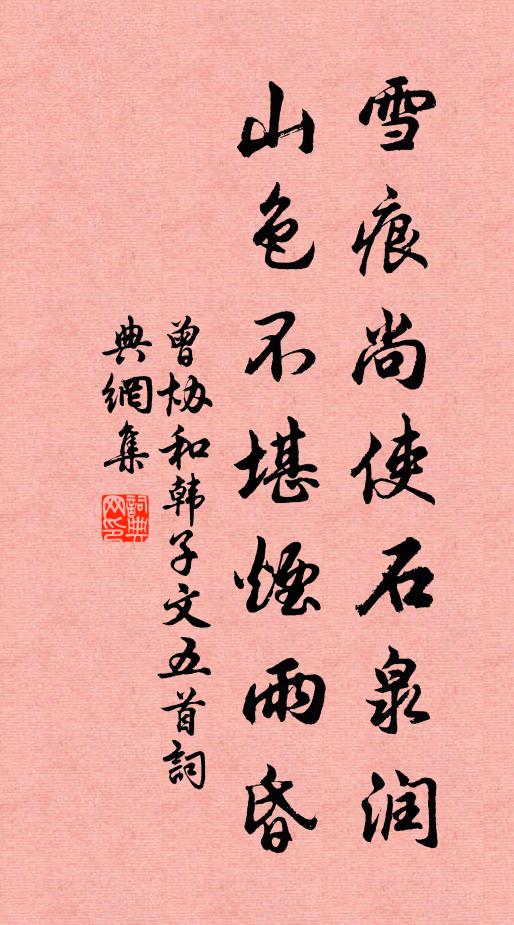 雪痕尚使石泉润
山色不堪煙雨昏
曾协和韩子文五首詞
典網集
詞典网印